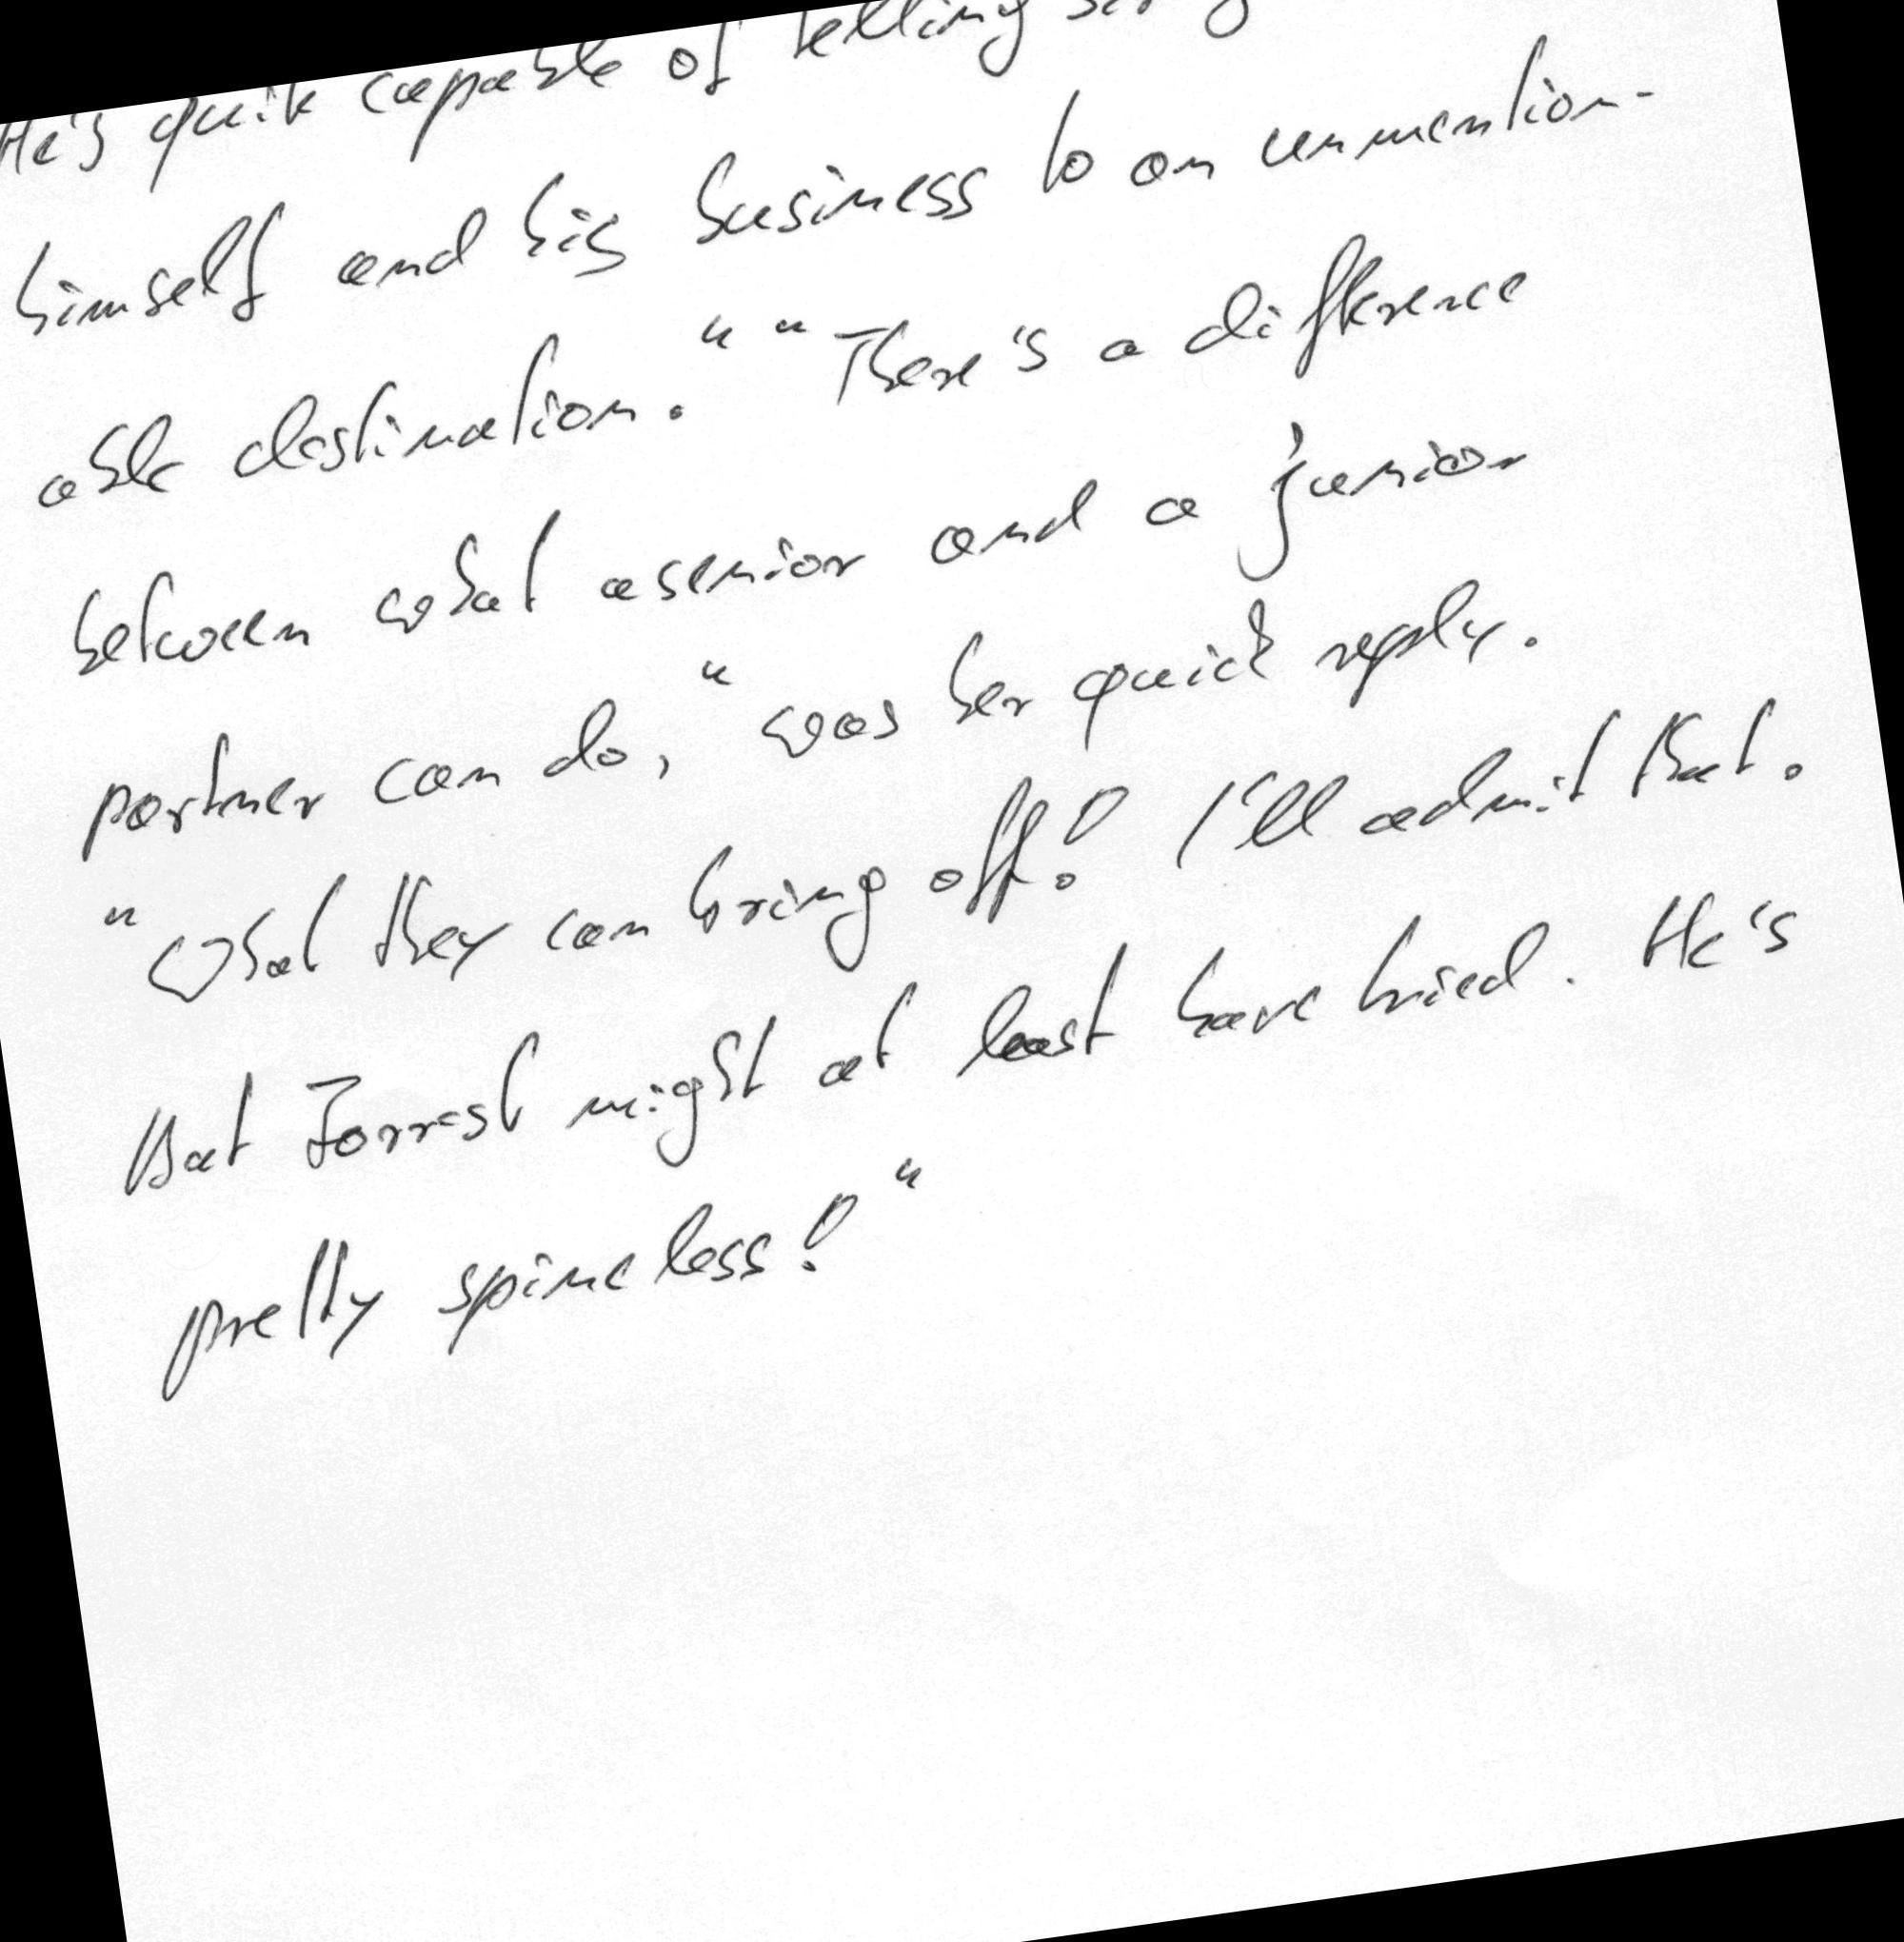 He's quite capable of telling
himself and his business to an unmention-
able destination." "There's a difference
between what a senior and a junior
partner can do," was her quick reply.
"What they can bring off! I'll admit that.
But Forrest might at least have tried. He's
pretty spineless!"